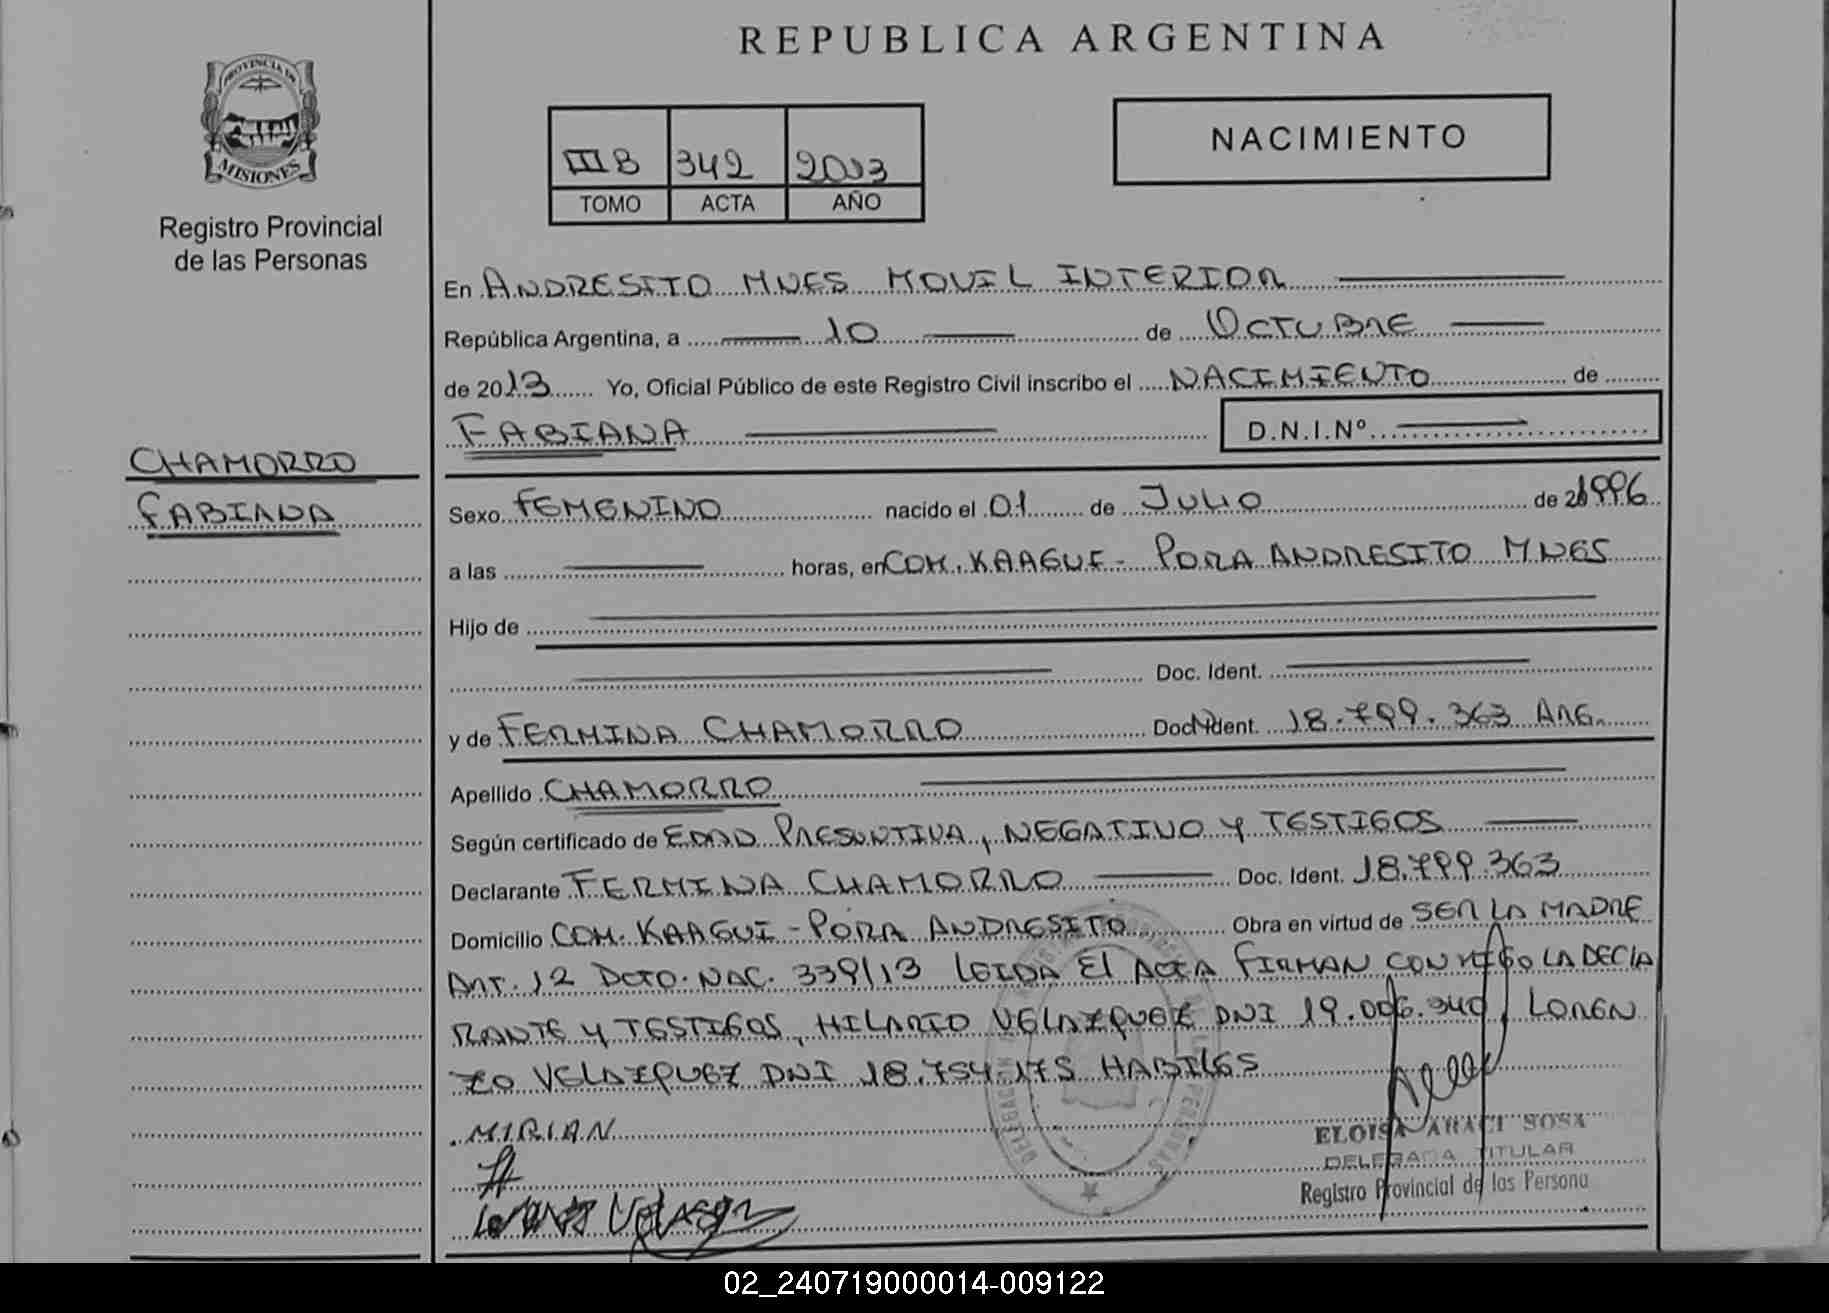 REPUBLICA ARGENTINA
PROVINCIA DE
MISIONES
Registro Provincial
de las Personas
III B 342 2013
TOMO ACTA AÑO
NACIMIENTO
En ANDRESITO MNES MOVIL INTERIOR
República Argentina, a 10 de OCTUBRE
de 2013 Yo, Oficial Público de este Registro Civil inscribo el NACIMIENTO de
FABIANA D.N.I.Nº
CHAMORRO
FABIANA
Sexo FEMENINO nacido el 01 de JULIO de 1996
a las horas, en COM. KAAGUI - PORA ANDRESITO MNES
Hijo de
Doc. Ident.
y de FERMINA CHAMORRO Doc. Ident. 18.799.363 ARG.
Apellido CHAMORRO
Según certificado de EDAD PRESUNTIVA, NEGATIVO Y TESTIGOS
Declarante FERMINA CHAMORRO Doc. Ident. 18.799.363
Domicilio COM. KAAGUI - PORA ANDRESITO Obra en virtud de SER LA MADRE
ART. 12 DCTO. NAC. 339/13 LEIDA EL ACTA FIRMAN CONMIGO LA DECLA
RANTE Y TESTIGOS, HILARIO VELAZQUEZ DNI 19.006.340, LOREN
ZO VELAZQUEZ DNI 18.754.175 HABILES
MIRIAN
ELOISA ARACI SOSA
DELEGADA TITULAR
Registro Provincial de las Persona
02_240719000014-009122